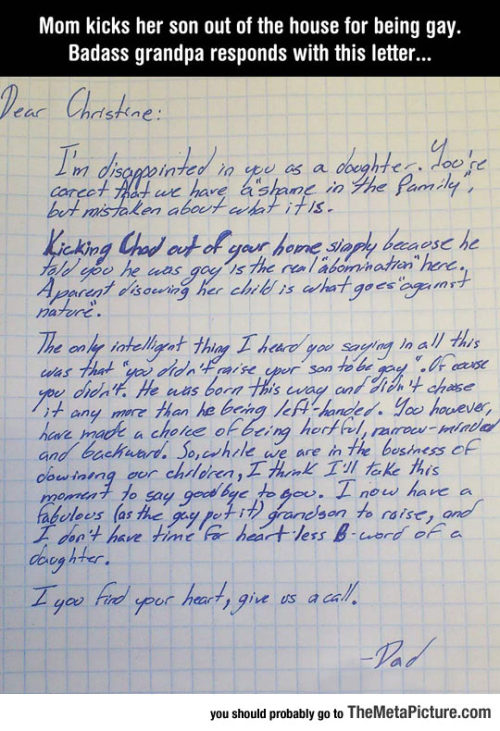 Mom kicks her son out of the house for being gay.
Badass grandpa responds with this letter...
Dear Christine:
I'm disappointed in you as a daughter. You're
corect that we have a "shame in the family",
but mistaken about what it is.
Kicking Chad out of your home simply because he
told you he was gay is the real "abomination" here.
A parent disowning her child is what goes "against
nature".
The only intelligent thing I heard you saying in all this
was that "you didn't raise your son to be gay". Of course
you didn't. He was born this way and didn't choose
it any more than he being left-handed. You however,
have made a choice of being hurtful, narrow-minded
and backward. So, while we are in the business of
disowning our children, I think I'll take this
moment to say goodbye to you. I now have a
fabulous (as the gay put it) grandson to raise, and
I don't have time for heart-less B-word of a
daughter.
I you find your heart, give us a call.
-Dad
you should probably go to TheMetaPicture.com